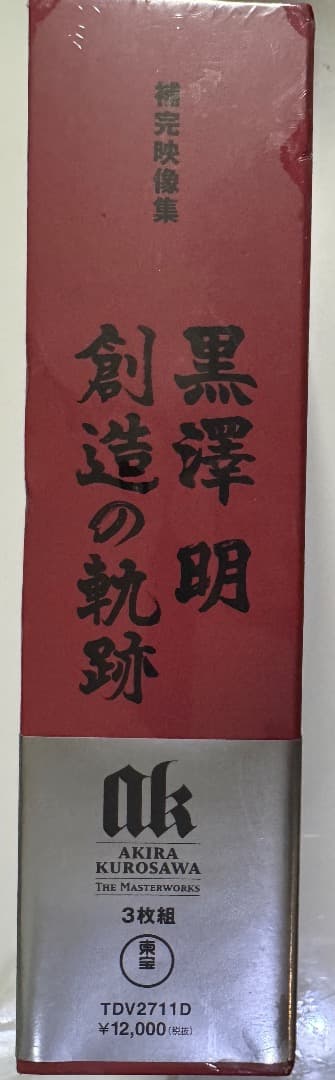 補完映像集
黒澤 明
創造の軌跡
ak
AKIRA
KUROSAWA
THE MASTERWORKS
3枚組
東宝
TDV2711D
¥12,000(税抜)